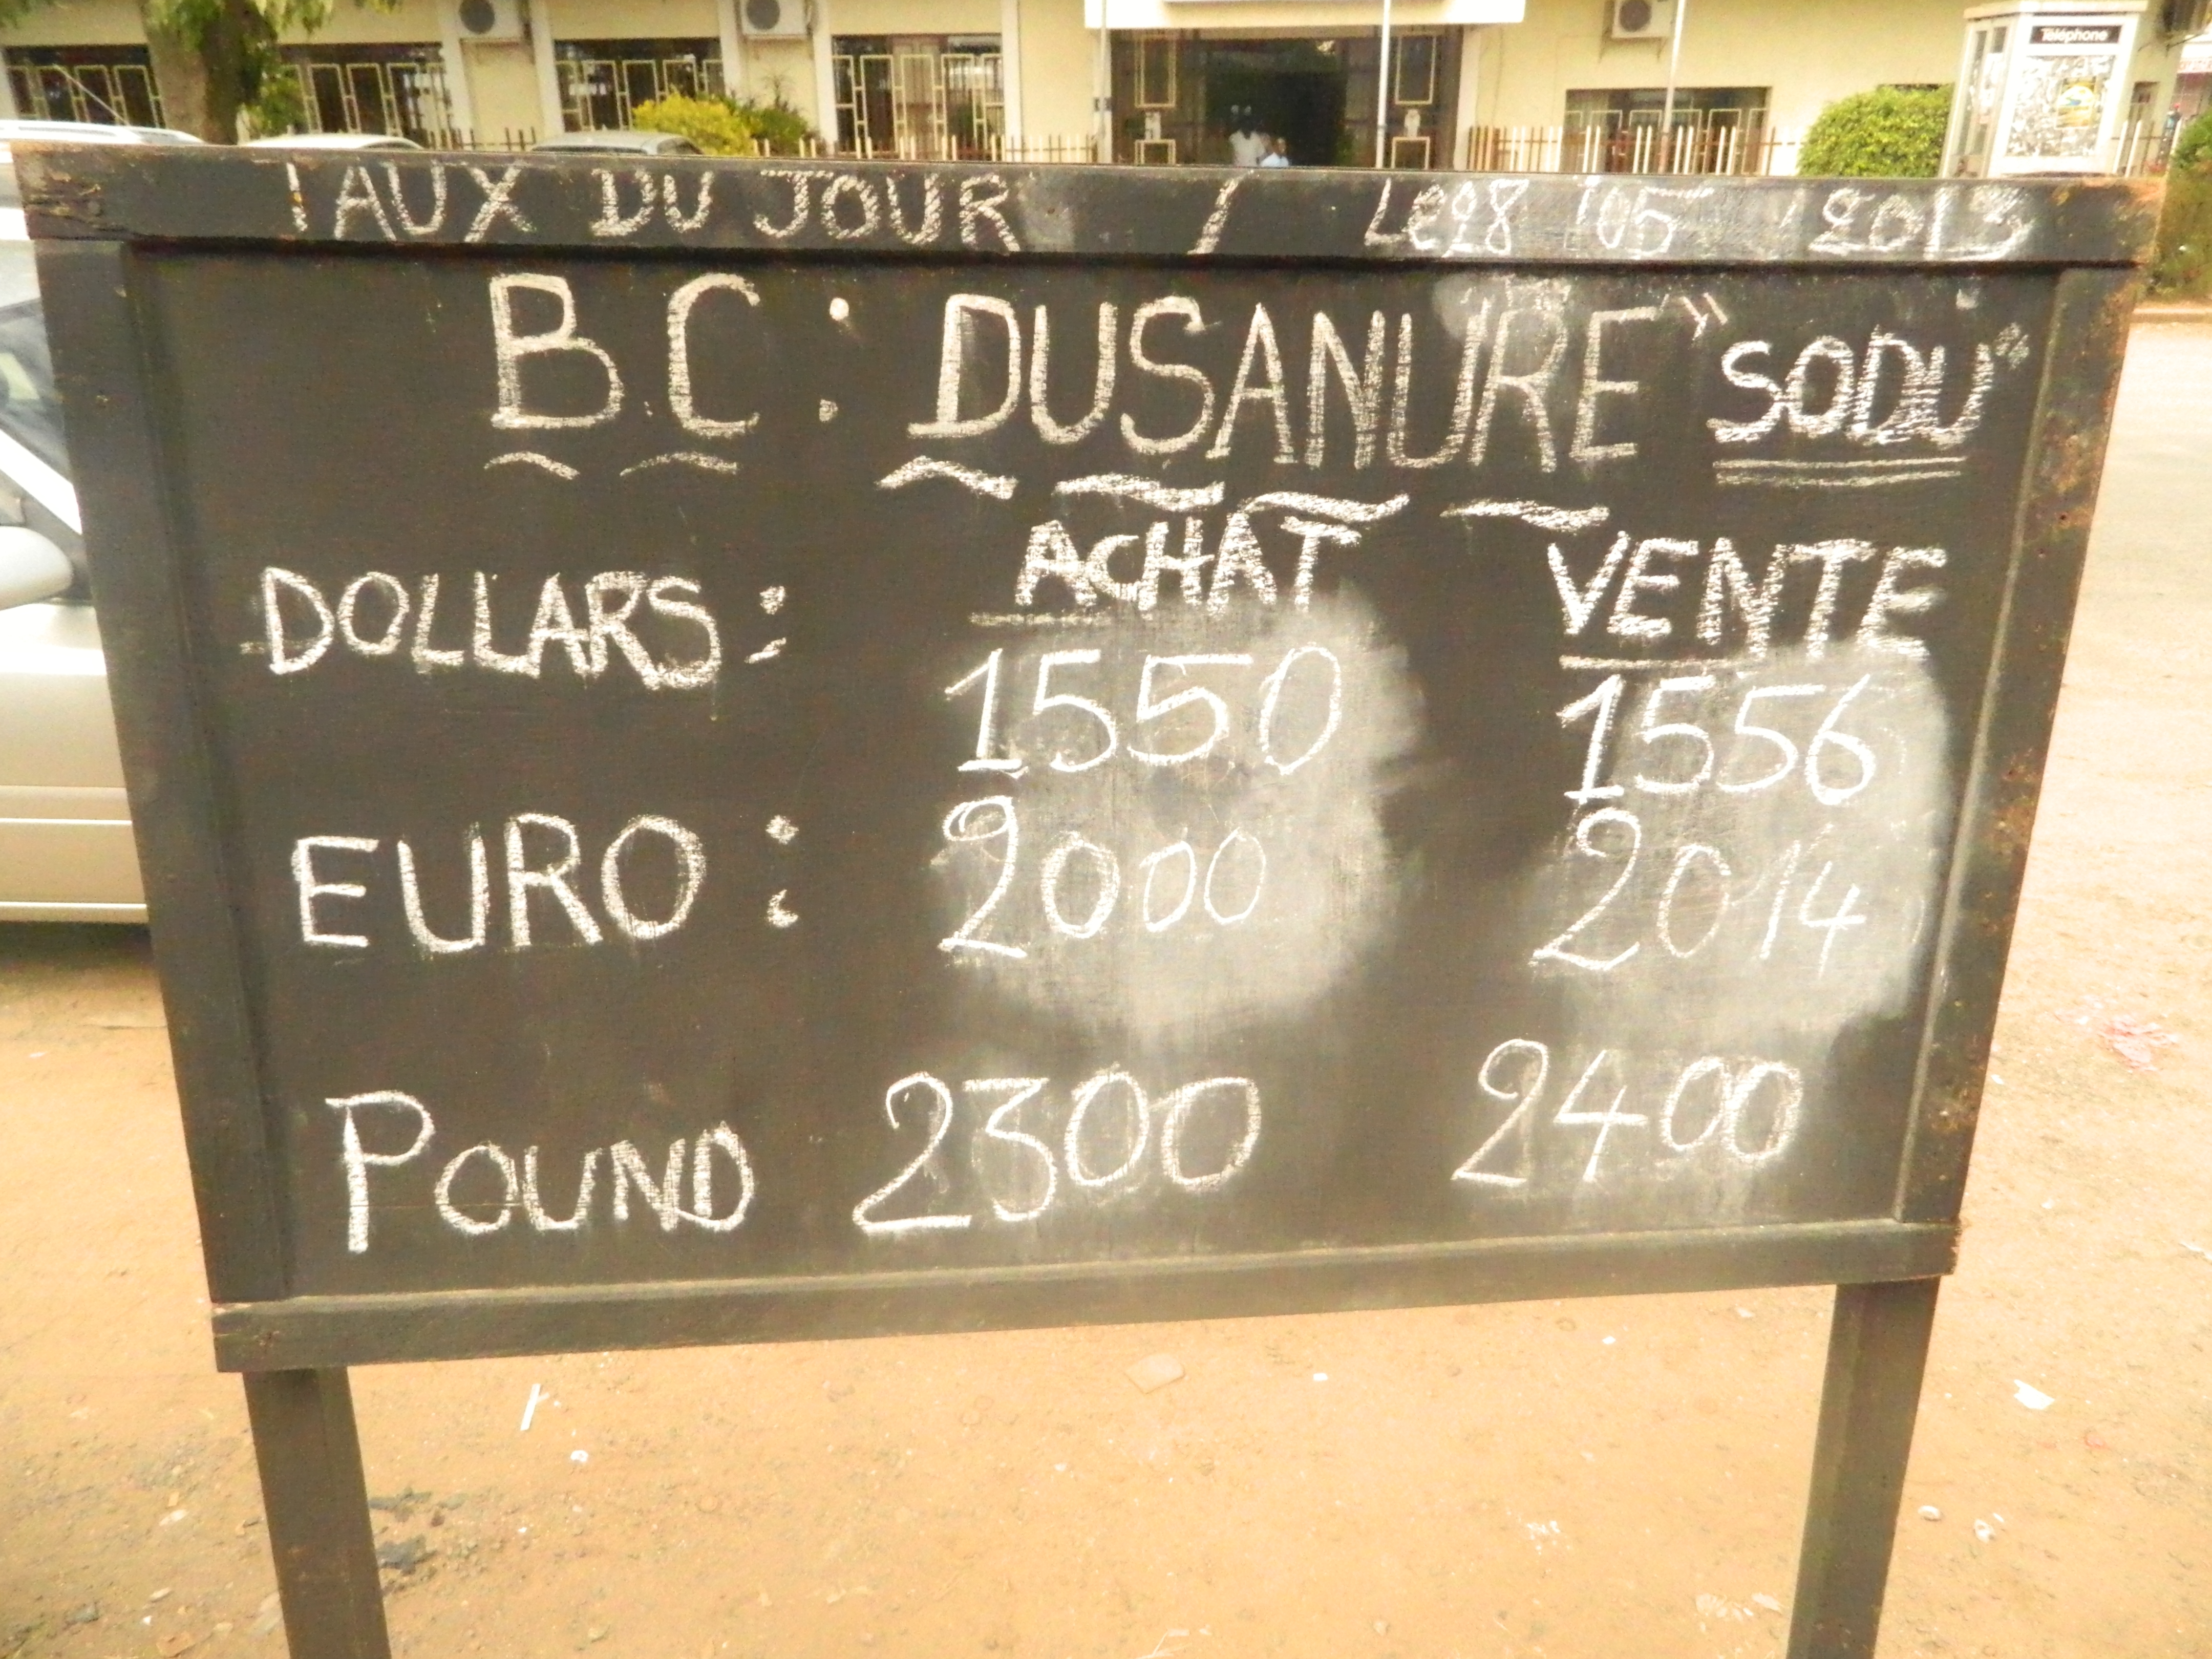 Téléphone
TAUX DU JOUR / Le 28 05 2013
B.C: DUSANURE "SODU"
ACHAT VENTE
DOLLARS: 1550 1556
EURO: 2000 2014
POUND 2300 2400